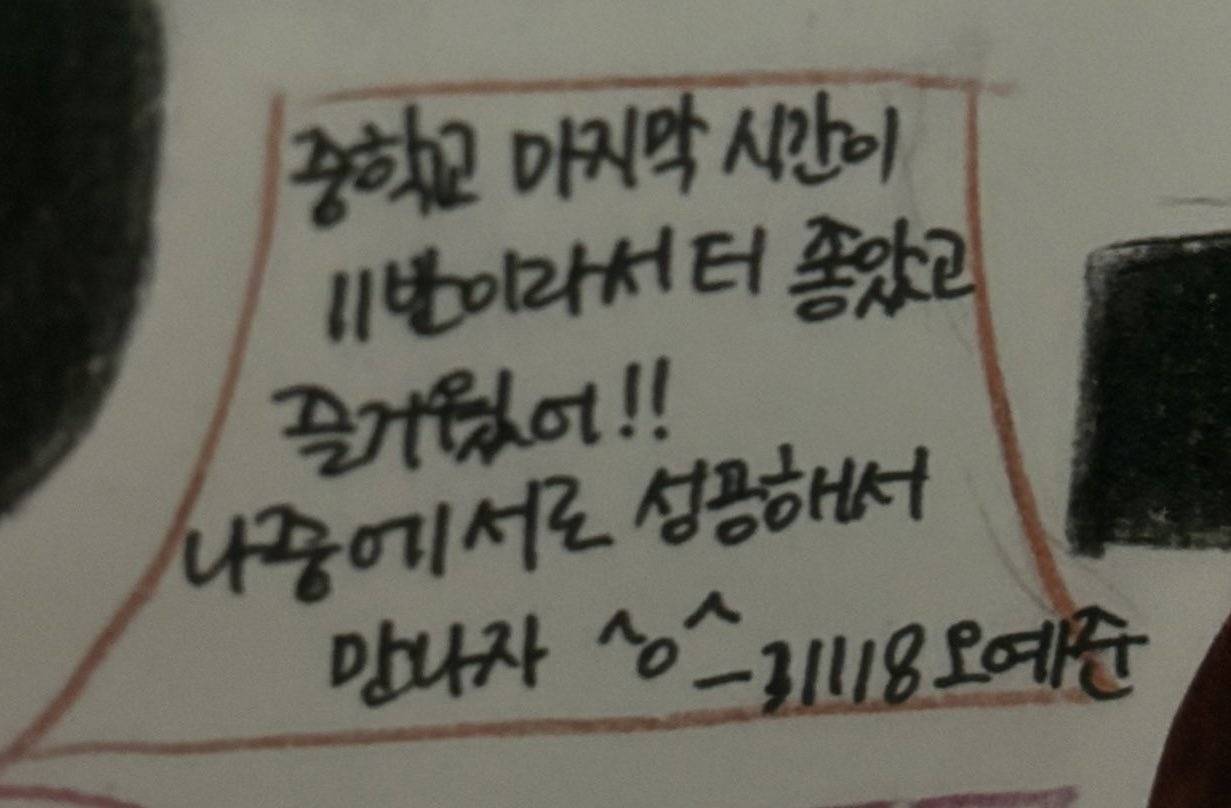 중학교 마지막 시간이
11반이라서 터 좋았고
즐거웠어!!
나중에 서로 성공해서
만나자 ^o^ - 31118 오예준